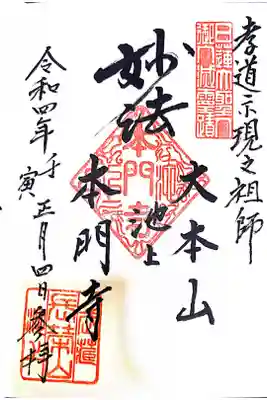 孝道示現之祖師
日蓮大聖人
御入滅霊場
大本山
池上
妙法
本門寺
令和四年壬寅正月四日参拝
長栄山